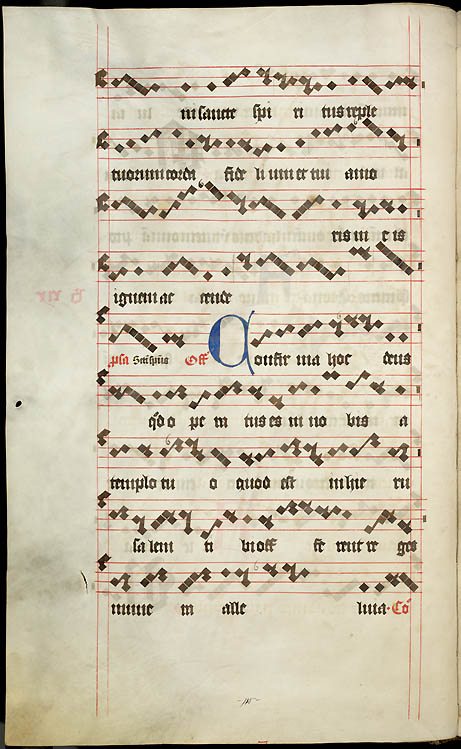 ni sancte spi ri tus reple
tuorum corda fide li um et tui amo
ris in e is
ignem ac cende
psa Off Confir ma hoc deus
qd o pe ra tus es in no bis a
templo tu o quod est in hie ru
sa lem ti bi off fe rent re ges
mune ra alle luia. Co